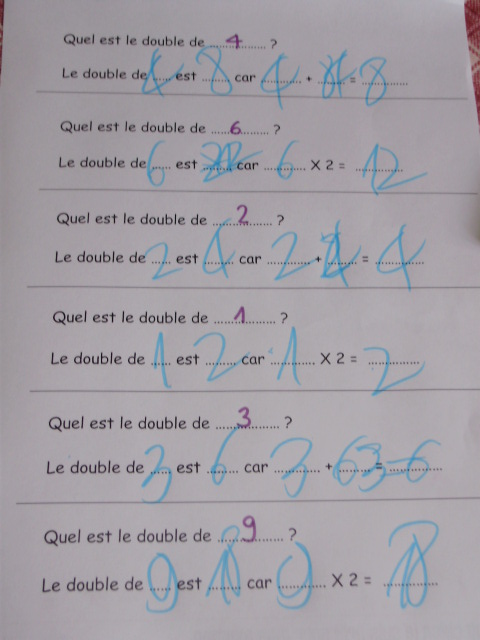 Quel est le double de ....4.... ?
Le double de 4 est 8 car 4 + 4 = 8
Quel est le double de ....6.... ?
Le double de 6 est 12 car 6 X 2 = 12
Quel est le double de ....2.... ?
Le double de 2 est 4 car 2 + 2 = 4
Quel est le double de ....1.... ?
Le double de 1 est 2 car 1 X 2 = 2
Quel est le double de ....3.... ?
Le double de 3 est 6 car 3 + 3 = 6
Quel est le double de ....9.... ?
Le double de 9 est 18 car 9 X 2 = 18